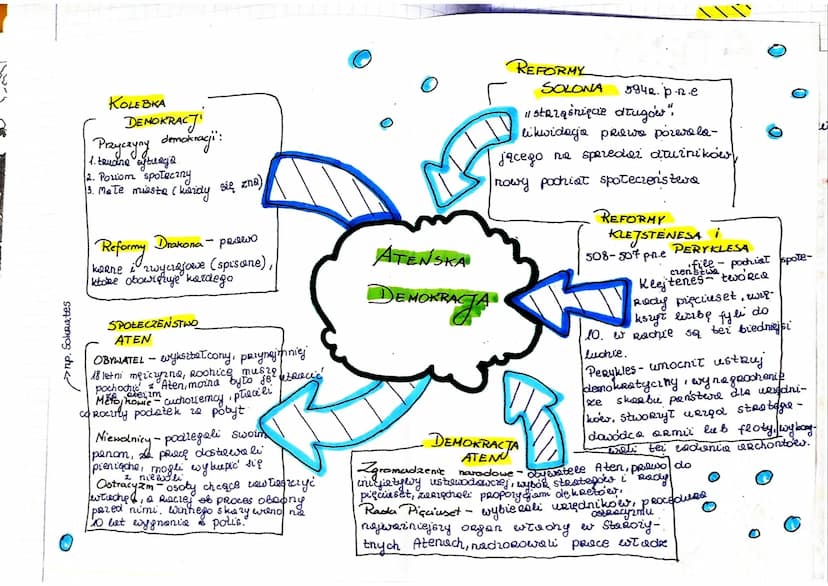 KOLEBKA
DEMOKRACJI
Przyczyny demokracji:
1. trudna sytuacja
2. Poziom społeczny
3. Małe miasta (każdy się zna)
Reformy Drakona - prawo
karne i zwyczajowe (spisane),
które obowiązuje każdego
REFORMY
SOLONA 594r. p.n.e
"strząśnięcie długów",
likwidacja prawa pozwala-
jącego na sprzedaż dłużników,
nowy podział społeczeństwa
ATEŃSKA
DEMOKRACJA
REFORMY
KLEJSTENESA i
PERYKLESA
508-507 p.n.e
file - podział społe-
czeństwa
Klejtenes - twórca
rady pięciuset, więk-
szył liczbę fyli do
10. w radzie są też biedniejsi
ludzie.
Perykles - umocnił ustrój
demokratyczny, wynagrodzenie
ze skarbu państwa dla urzędni-
ków, stworzył urząd stratega -
dowódca armii lub floty, wykony-
wali też zadania archontów.
SPOŁECZEŃSTWO
ATEN
OBYWATEL - wykształcony, przynajmniej
18 letni mężczyzna, rodzice muszą
pochodzić z Aten, można było je utracić
Metojkowie - cudzoziemcy, płacili
coroczny podatek za pobyt
Niewolnicy - podlegali swoim
panom, za pracę dostawali
pieniądze, mogli wykupić się
z niewoli
Ostracyzm - osoby chcące zawłaszczyć
władzę, a raczej st proces obrony
przed nimi. Winnego skazywano na
10 lat wygnania z polis.
→ np. Sokrates
DEMOKRACJA
ATEN
Zgromadzenie narodowe - obywatele Aten, prawo do
inicjatywy ustawodawczej, wybór strategów i Rady
pięciuset, zarządzali propozycjami dekretów,
procedura
ostracyzmu
Rada Pięciuset - wybierali urzędników,
najważniejszy organ władzy w Staroży-
tnych Atenach, nadzorowali prace władz